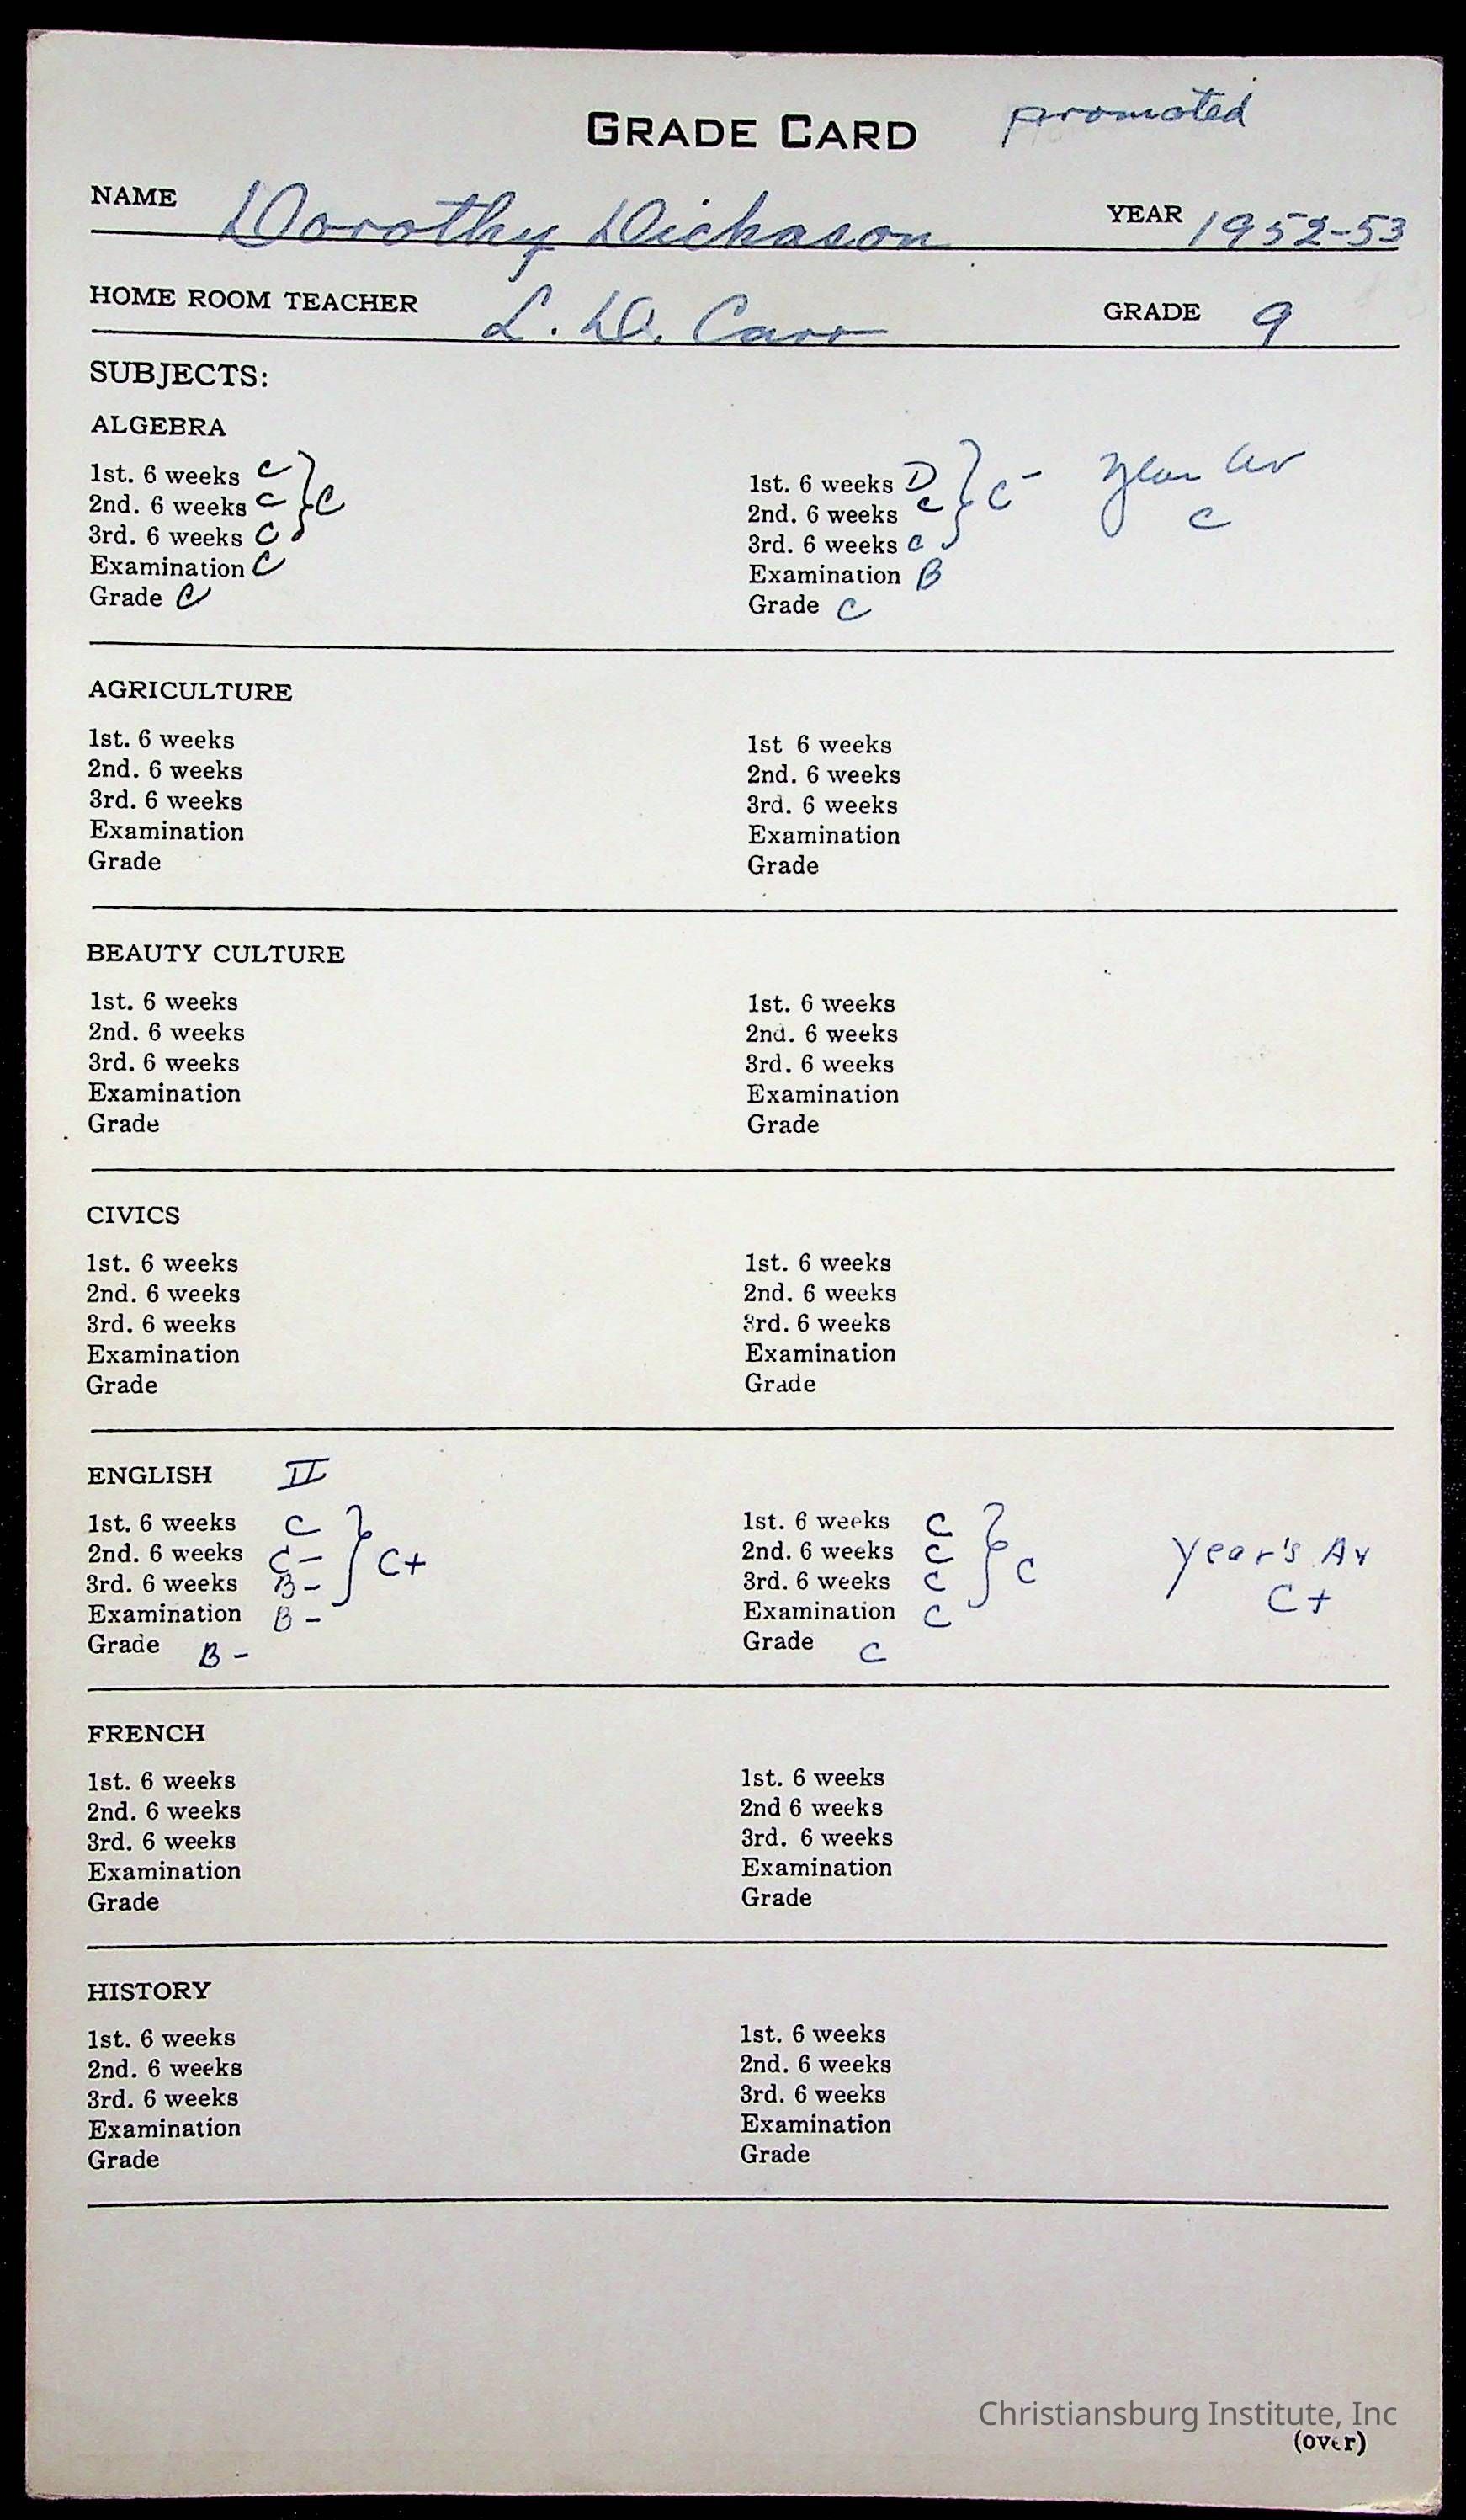 GRADE CARD promoted
NAME Dorothy Dickason YEAR 1952-53
HOME ROOM TEACHER L. D. Carr GRADE 9
SUBJECTS:
ALGEBRA
1st. 6 weeks C
2nd. 6 weeks C } C
3rd. 6 weeks C
Examination C
Grade C
1st. 6 weeks D
2nd. 6 weeks C } C-
3rd. 6 weeks C
Examination B
Grade C
Year Av
C
AGRICULTURE
1st. 6 weeks
2nd. 6 weeks
3rd. 6 weeks
Examination
Grade
1st 6 weeks
2nd. 6 weeks
3rd. 6 weeks
Examination
Grade
BEAUTY CULTURE
1st. 6 weeks
2nd. 6 weeks
3rd. 6 weeks
Examination
Grade
1st. 6 weeks
2nd. 6 weeks
3rd. 6 weeks
Examination
Grade
CIVICS
1st. 6 weeks
2nd. 6 weeks
3rd. 6 weeks
Examination
Grade
1st. 6 weeks
2nd. 6 weeks
3rd. 6 weeks
Examination
Grade
ENGLISH II
1st. 6 weeks C
2nd. 6 weeks C- } C+
3rd. 6 weeks B-
Examination B-
Grade B-
1st. 6 weeks C
2nd. 6 weeks C } C
3rd. 6 weeks C
Examination C
Grade C
Year's Av
C+
FRENCH
1st. 6 weeks
2nd. 6 weeks
3rd. 6 weeks
Examination
Grade
1st. 6 weeks
2nd 6 weeks
3rd. 6 weeks
Examination
Grade
HISTORY
1st. 6 weeks
2nd. 6 weeks
3rd. 6 weeks
Examination
Grade
1st. 6 weeks
2nd. 6 weeks
3rd. 6 weeks
Examination
Grade
Christiansburg Institute, Inc
(over)